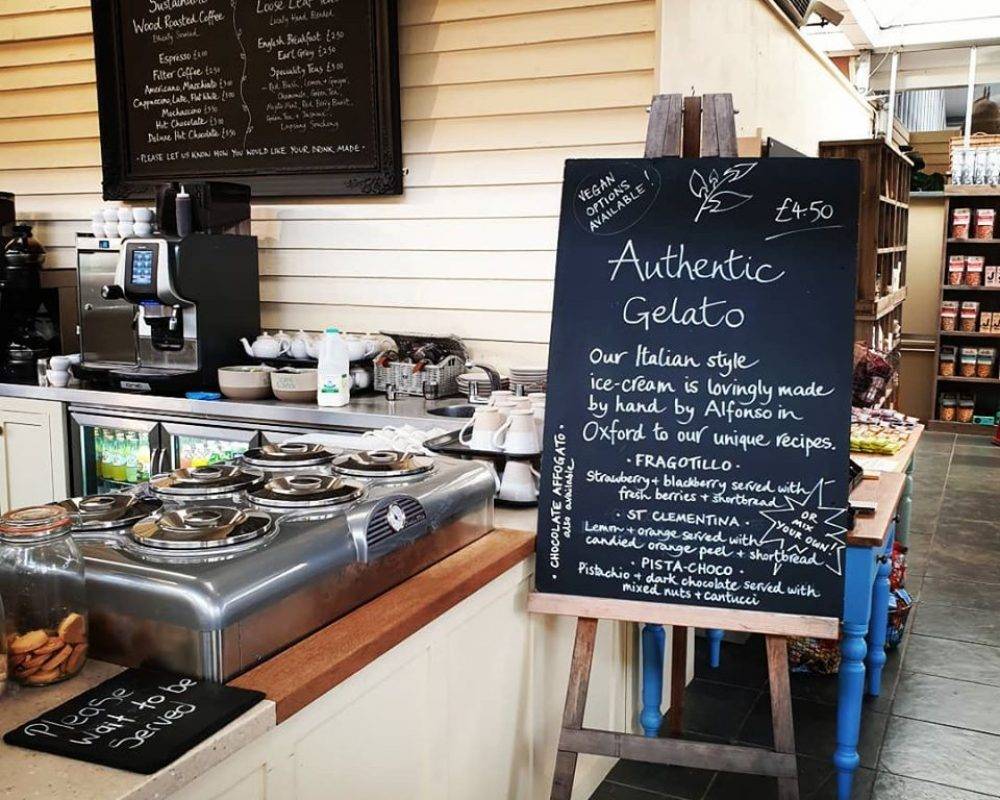 Sustainable
Wood Roasted Coffee
Ethically Sourced
Espresso £2.00
Filter Coffee £2.50
Americano, Macchiato £3.00
Cappuccino, Latte, Flat White £3.00
Mochaccino £3.50
Hot Chocolate £3.00
Deluxe Hot Chocolate £3.50
Loose Leaf Teas
Locally Hand Blended
English Breakfast £2.50
Earl Grey £2.50
Speciality Teas £3.00
Lapsang Souchong
• PLEASE LET US KNOW HOW YOU WOULD LIKE YOUR DRINK MADE •
VEGAN
OPTIONS
AVAILABLE!
£4.50
Authentic
Gelato
Our Italian style
ice-cream is lovingly made
by hand by Alfonso in
Oxford to our unique recipes.
• FRAGOTILLO •
Strawberry + blackberry served with
fresh berries + shortbread
• ST CLEMENTINA •
Lemon + orange served with
candied orange peel + shortbread
• PISTA-CHOCO •
Pistachio + dark chocolate served with
mixed nuts + cantucci
OR
MIX
YOUR OWN!
• CHOCOLATE AFFOGATO •
also available
Please
wait to be
Served